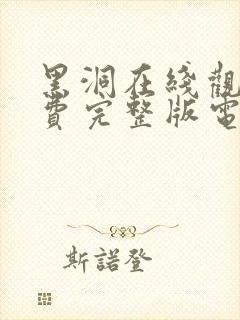 黑洞在綫觀
費完整版電
斯諾登